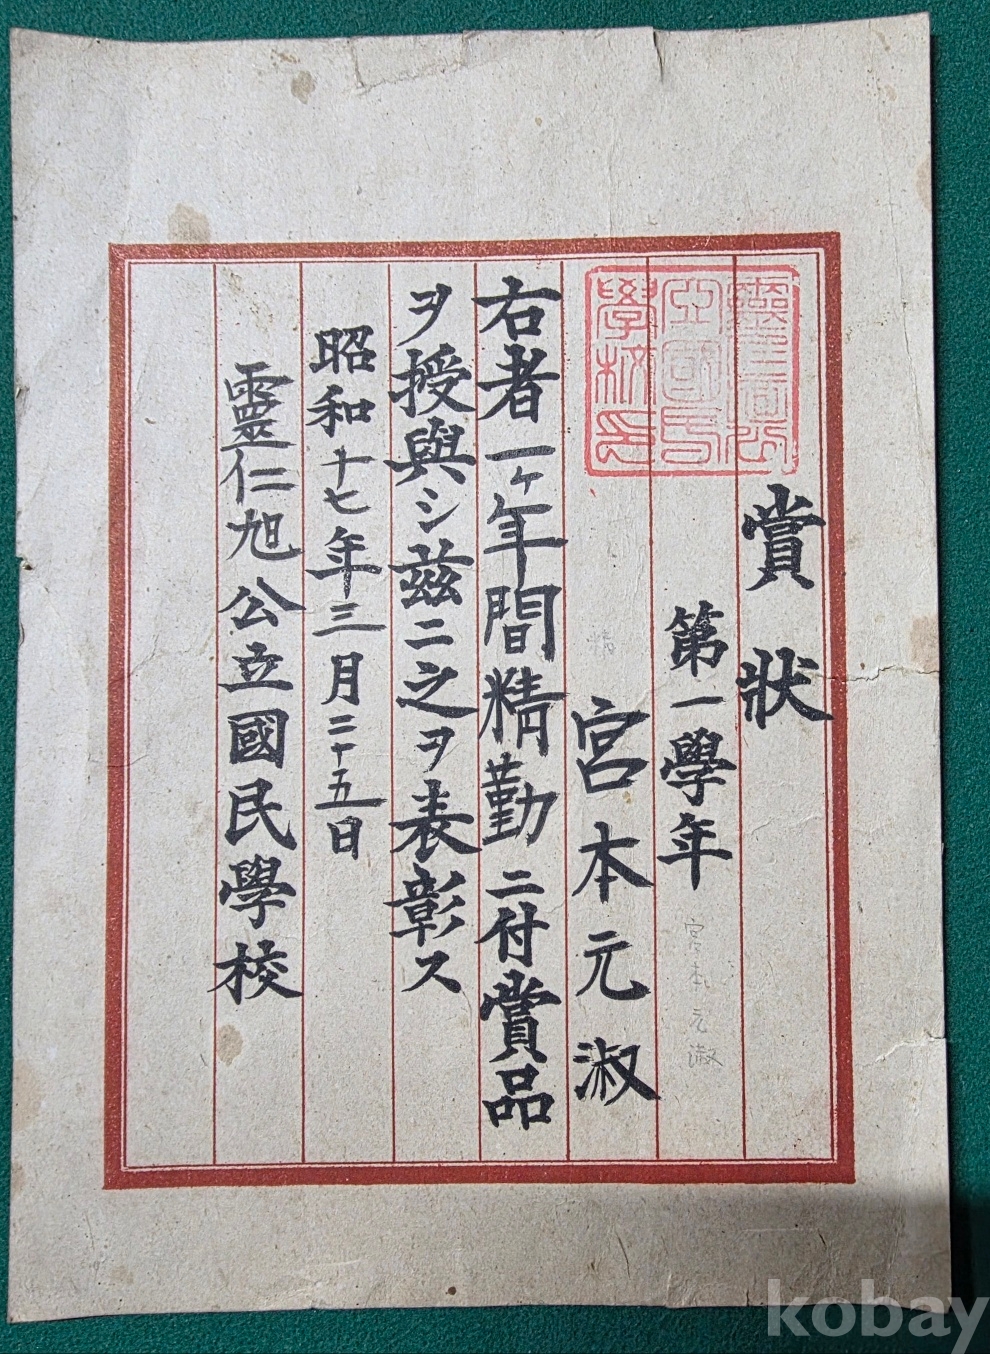 賞狀
第一學年
宮本元淑
右者一ヶ年間精勤ニ付賞品
ヲ授與シ茲ニ之ヲ表彰ス
昭和十七年三月二十五日
靈仁旭公立國民學校
宮本元淑
精
kobay